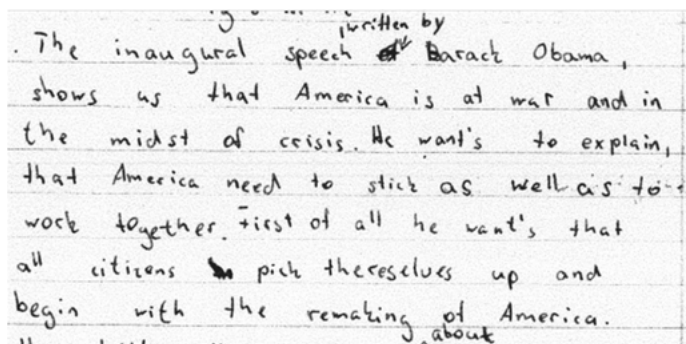 written by
. The inaugural speech Barack Obama,
shows us that America is at war and in
the midst of crisis. He want's to explain,
that America need to stick as well as to
work together. First of all he want's that
all citizens pick thereselves up and
begin with the remaking of America.
about